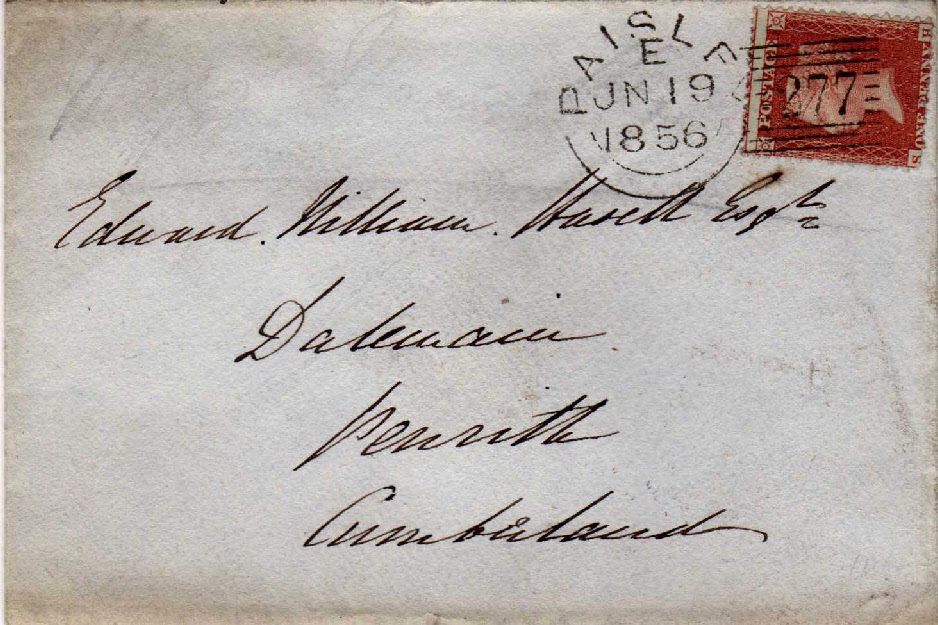 PAISLEY
E
JN 19
1856
277
POSTAGE
ONE PENNY
Edward William Hasell Esqre
Dalemain
Penrith
Cumberland